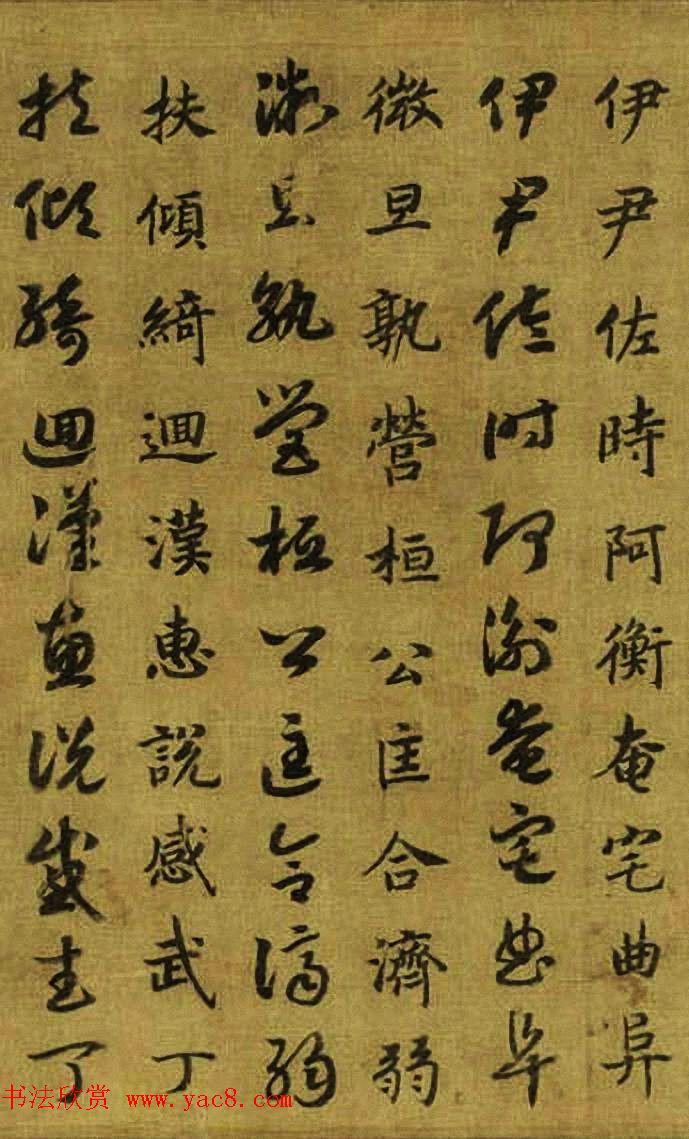 伊尹佐時阿衡奄宅曲阜
伊尹佐时阿衡奄宅曲阜
微旦孰營桓公匡合濟弱
微旦孰營桓公匡合濟弱
扶傾綺迴漢惠說感武丁
扶傾綺迴漢惠說感武丁
书法欣赏 www.yac8.com